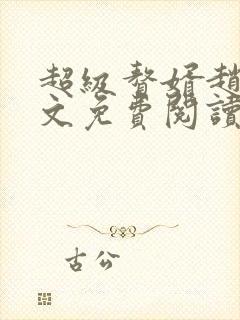 超級贅婿趙
文免費閱讀
古公